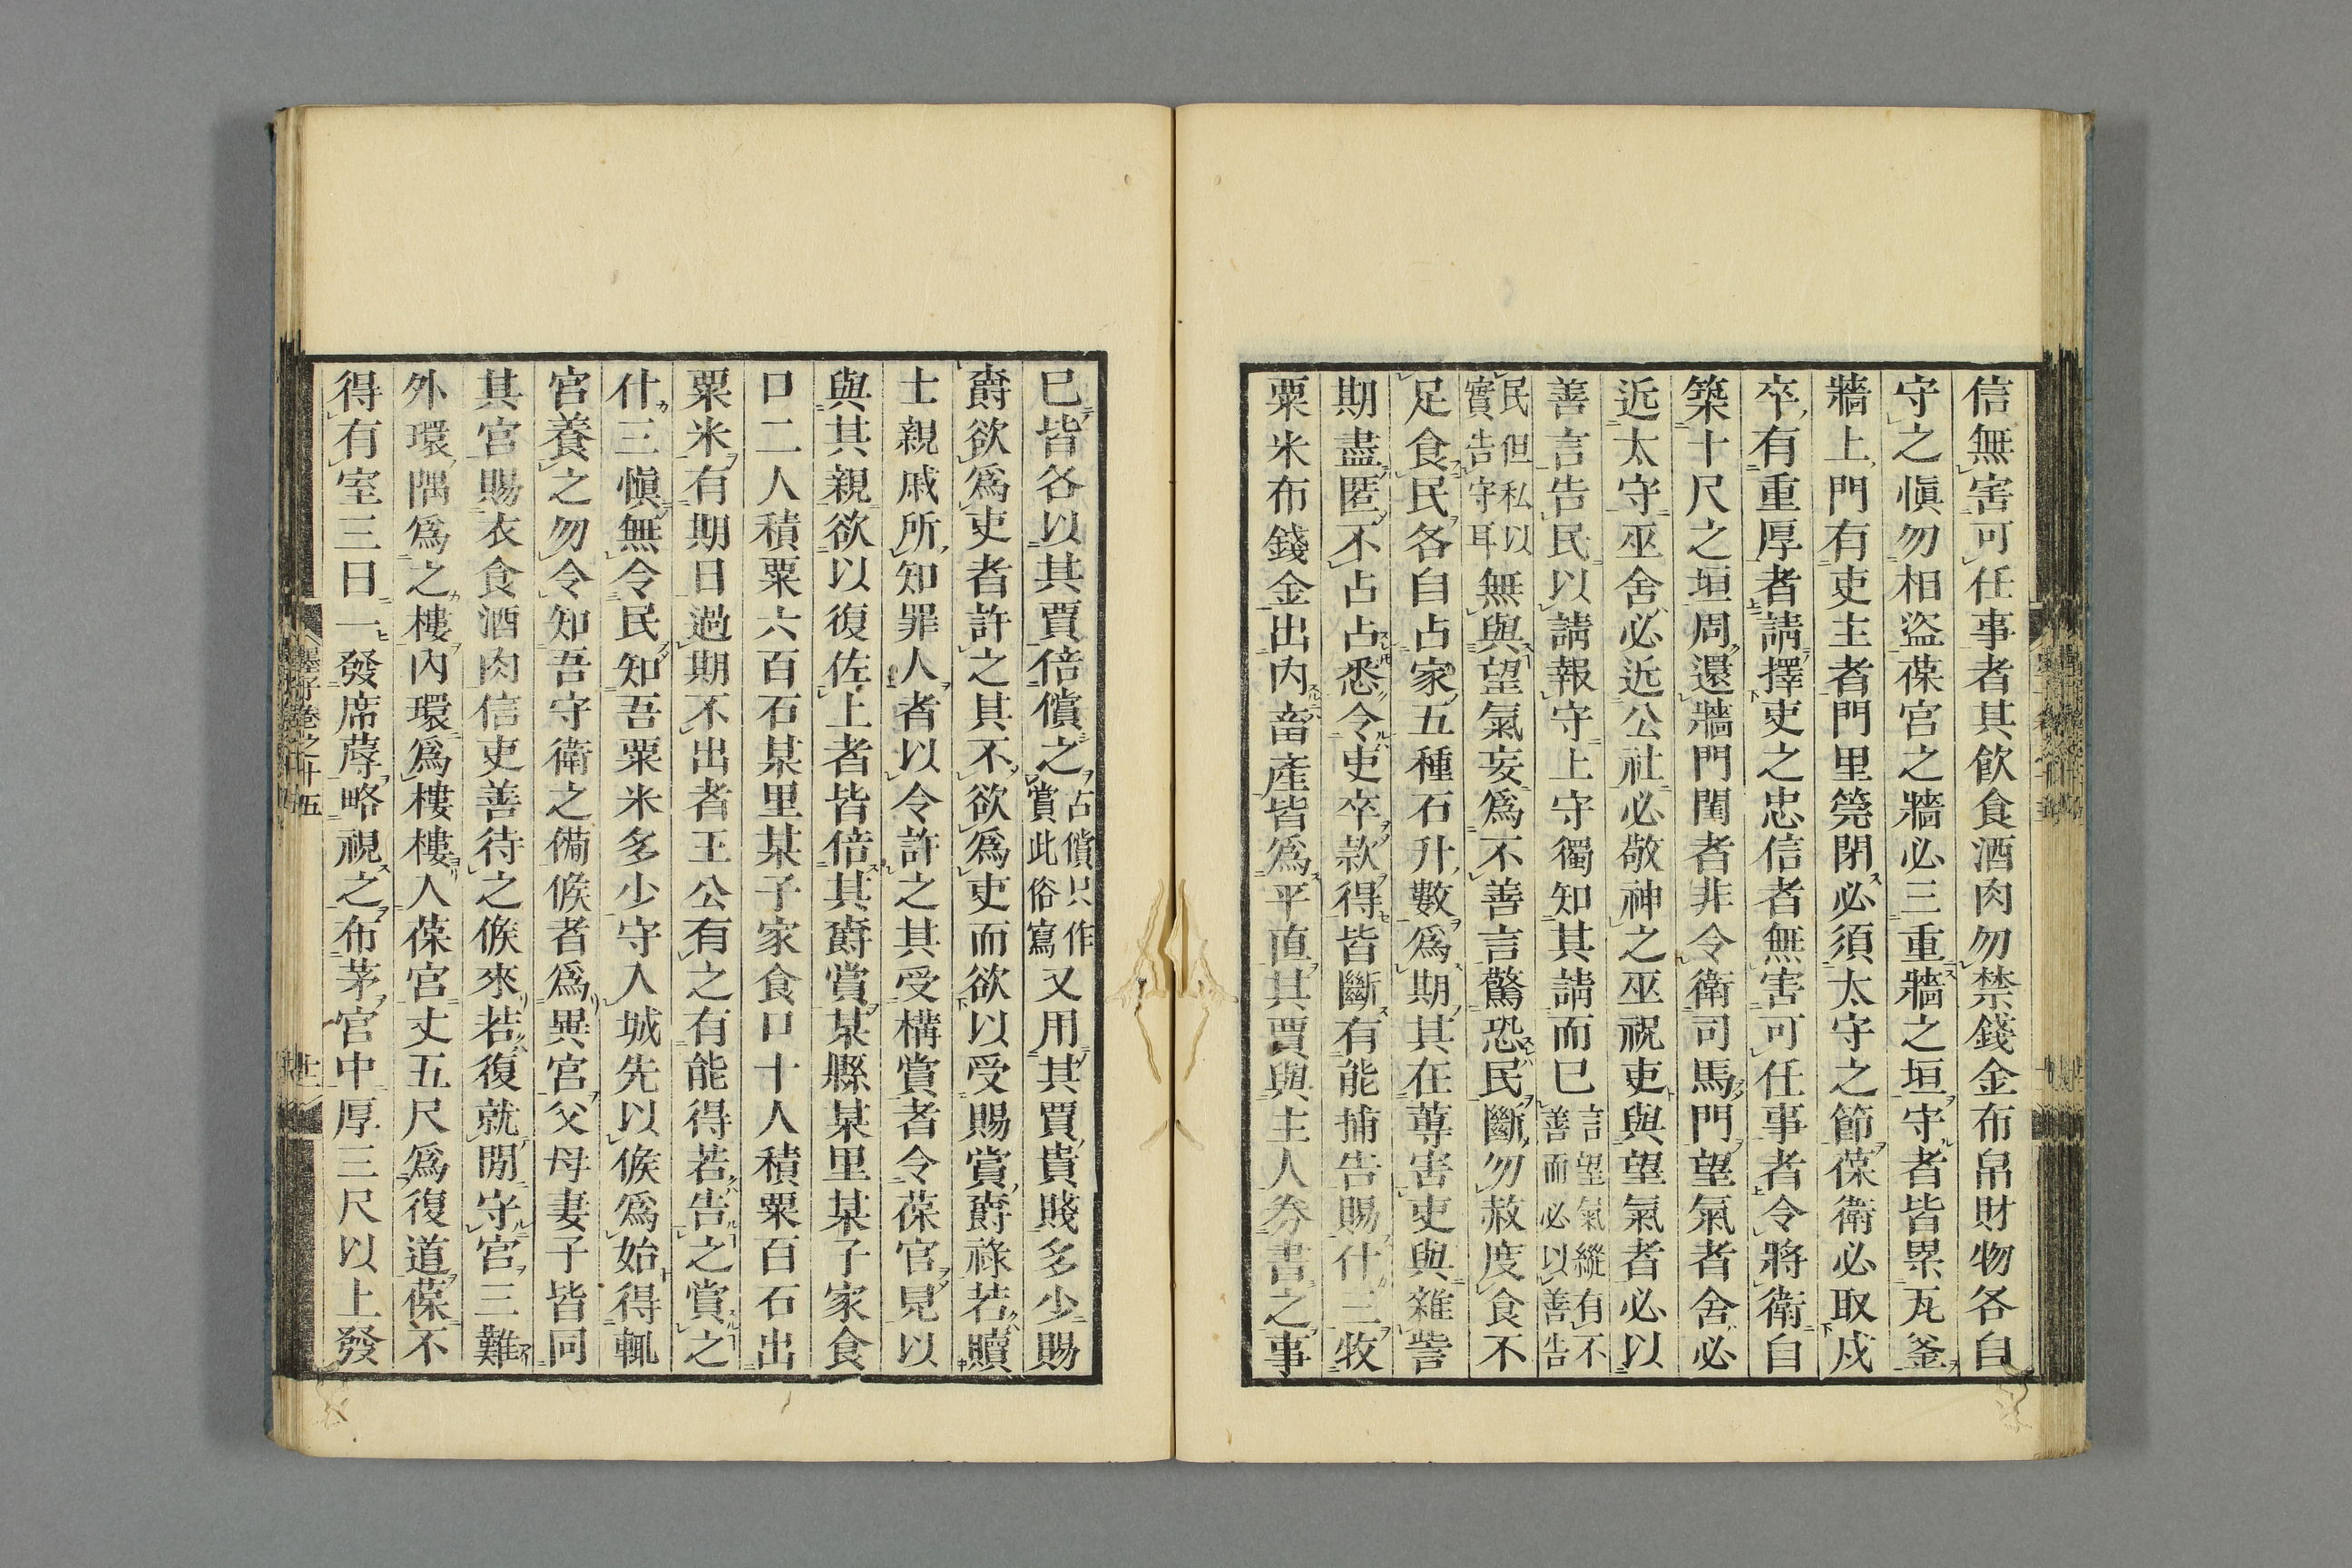 信無害可任事者其飮食酒肉勿禁錢金布帛財物各自
守之愼勿相盜葆宮之牆必三重牆之垣守者皆累瓦釜
牆上門有吏主者門里筦閉必須太守之節葆衛必取戍
卒有重厚者請擇吏之忠信者無害可任事者令將衛自
築十尺之垣周還牆門閨者非令衛司馬門望氣者舍必
近太守巫舍必近公社必敬神之巫祝吏與望氣者必以
善言告民以請報守上守獨知其請而已言望氣縱有不善而必以善告
民但私以實告守耳無與望氣妄爲不善言驚恐民斷勿赦度食不
足食民各自占家五種石升數爲期其在蓴害吏與雜訾
期盡匿不占占悉令吏卒款得皆斷有能捕告賜什三牧
粟米布錢金出內畜產皆爲平直其賈與主人券書之事
已皆各以其賈倍償之古償只作賞此俗寫又用其賈貴賤多少賜
爵欲爲吏者許之其不欲爲吏而欲以受賜賞爵祿若贖
士親戚所知罪人者以令許之其受構賞者令葆宮見以
與其親欲以復佐上者皆倍其爵賞某縣某里某子家食
口二人積粟六百石某里某子家食口十人積粟百石出
粟米有期日過期不出者王公有之有能得若告之賞之
什三愼無令民知吾粟米多少守入城先以候爲始得輒
宮養之勿令知吾守衛之備候者爲異宮父母妻子皆同
其宮賜衣食酒肉信吏善待之候來若復就閒守宮三難
外環隅爲之樓內環爲樓樓入葆宮丈五尺爲復道葆不
得有室三日一發席蓐略視之布茅宮中厚三尺以上發
墨子卷之十五